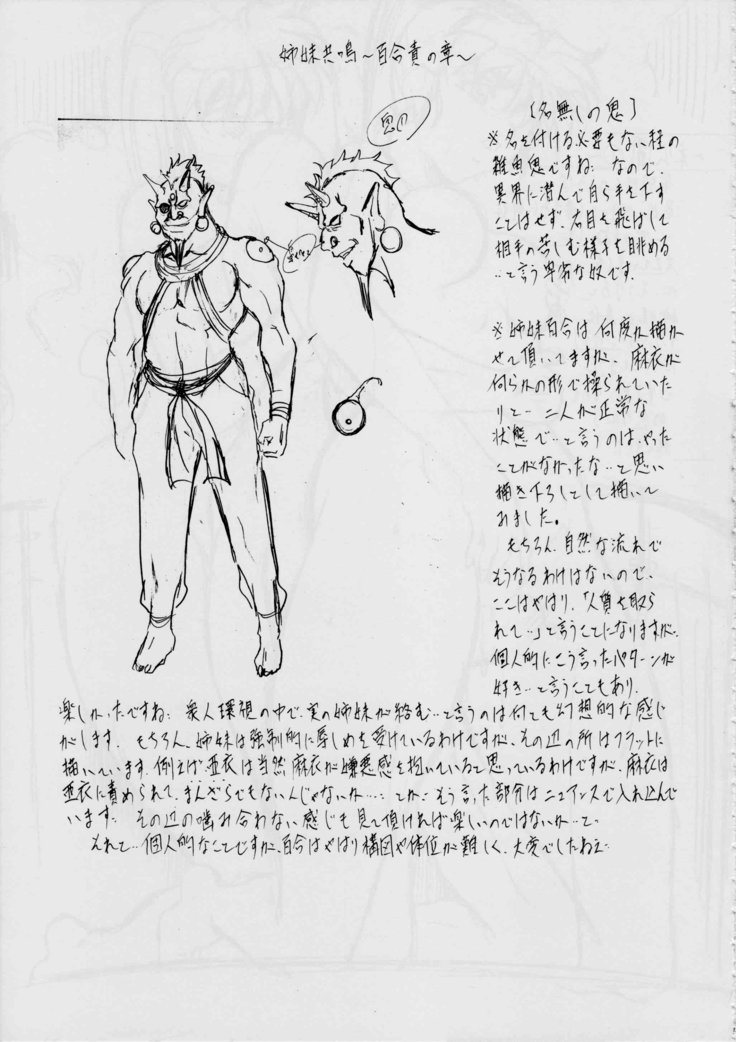 姉妹共鳴〜百合責の章〜
鬼の
[名無しの鬼]
※名を付ける必要もない程の
雑魚鬼ですね… なので、
異界に潜んで自ら手を下す
ことはせず、右目を飛ばして
相手の苦しむ様子を眺める
…と言う卑劣な奴です。
※姉妹百合は何度か描か
せて頂いてますが、麻衣が
何らかの形で操られていた
りと… 二人が正常な
状態で…と言うのは、やった
ことがなかったな…と思い
描き下ろしとして描いて
みました。
もちろん、自然な流れで
そうなるわけはないので、
ここはやはり、「人質を取ら
れて…」と言うことになりますが…
個人的にこう言ったパターンが
好き…と言うこともあり、
楽しかったですね… 衆人環視の中で、実の姉妹が絡む…と言うのは何とも幻想的な感じ
がします。もちろん、姉妹は強制的に辱しめを受けているわけですが、その辺の所はフラットに
描いています。例えば、亜衣は当然麻衣が嫌悪感を抱いていると思っているわけですが、麻衣は
亜衣に責められて、まんざらでもないんじゃないか…… とか… そう言った部分はニュアンスで入れ込んで
います… その辺の噛み合わない感じも見て頂ければ楽しいのではないか…と、
それと… 個人的なことですが、百合はやはり構図や体位が難しく、大変でしたねえ…